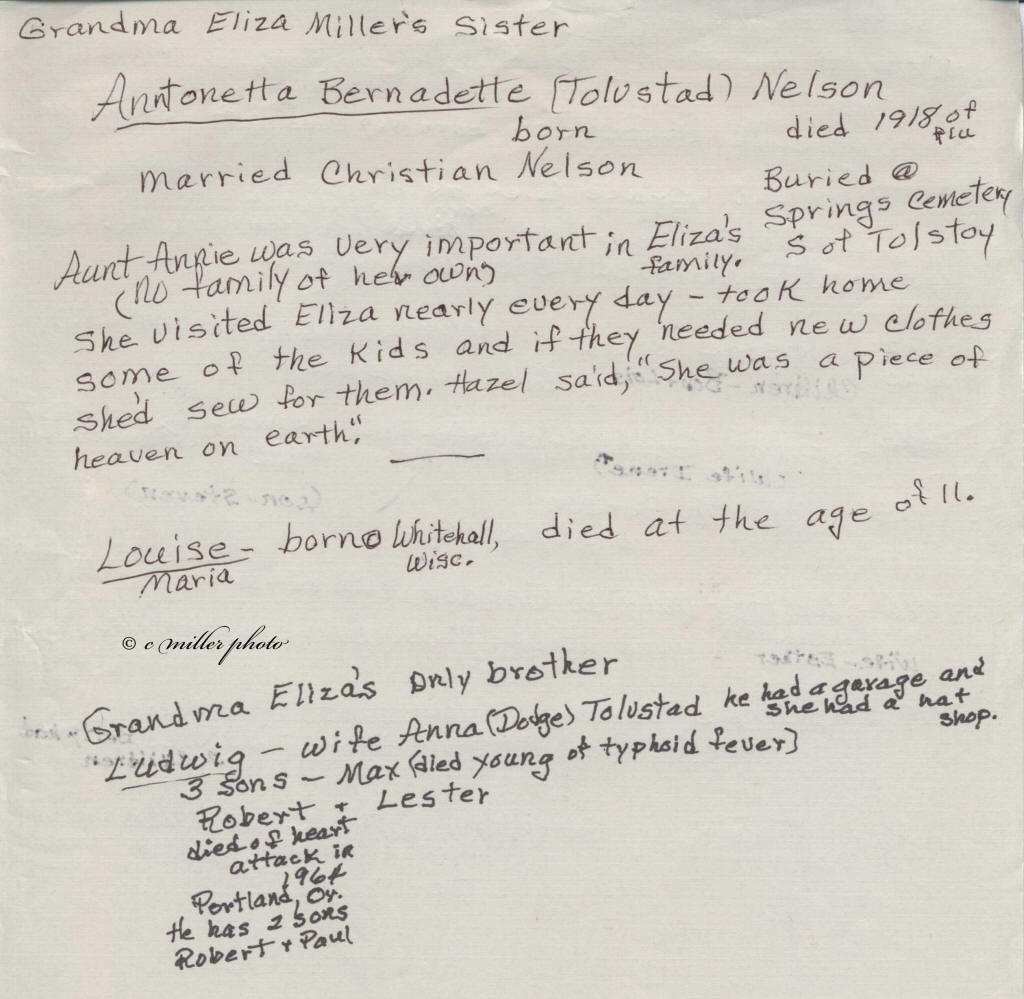 Grandma Eliza Miller's Sister
Anntonetta Bernadette (Tolustad) Nelson
born
died 1918 of flu
married Christian Nelson
Buried @
Springs Cemetery
S of Tolstoy
Aunt Annie was very important in Eliza's
family.
(no family of her own)
She visited Eliza nearly every day - took home
some of the kids and if they needed new clothes
she'd sew for them. Hazel said, "She was a piece of
heaven on earth".
Louise - born @ Whitehall, died at the age of 11.
Maria
Wisc.
© c miller photo
Grandma Eliza's Only brother
Ludwig - wife Anna (Dodge) Tolustad he had a garage and
she had a hat
shop.
3 sons - Max (died young of typhoid fever)
Robert + Lester
died of heart
attack in
1964
Portland, Or.
He has 2 sons
Robert + Paul